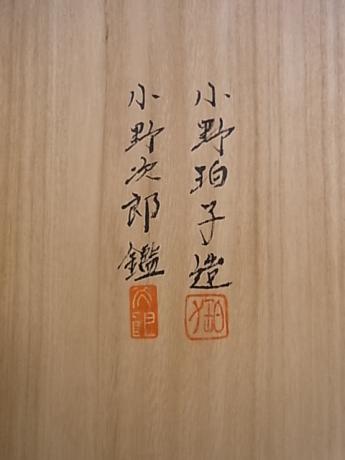 小野珀子造
小野次郎鑑